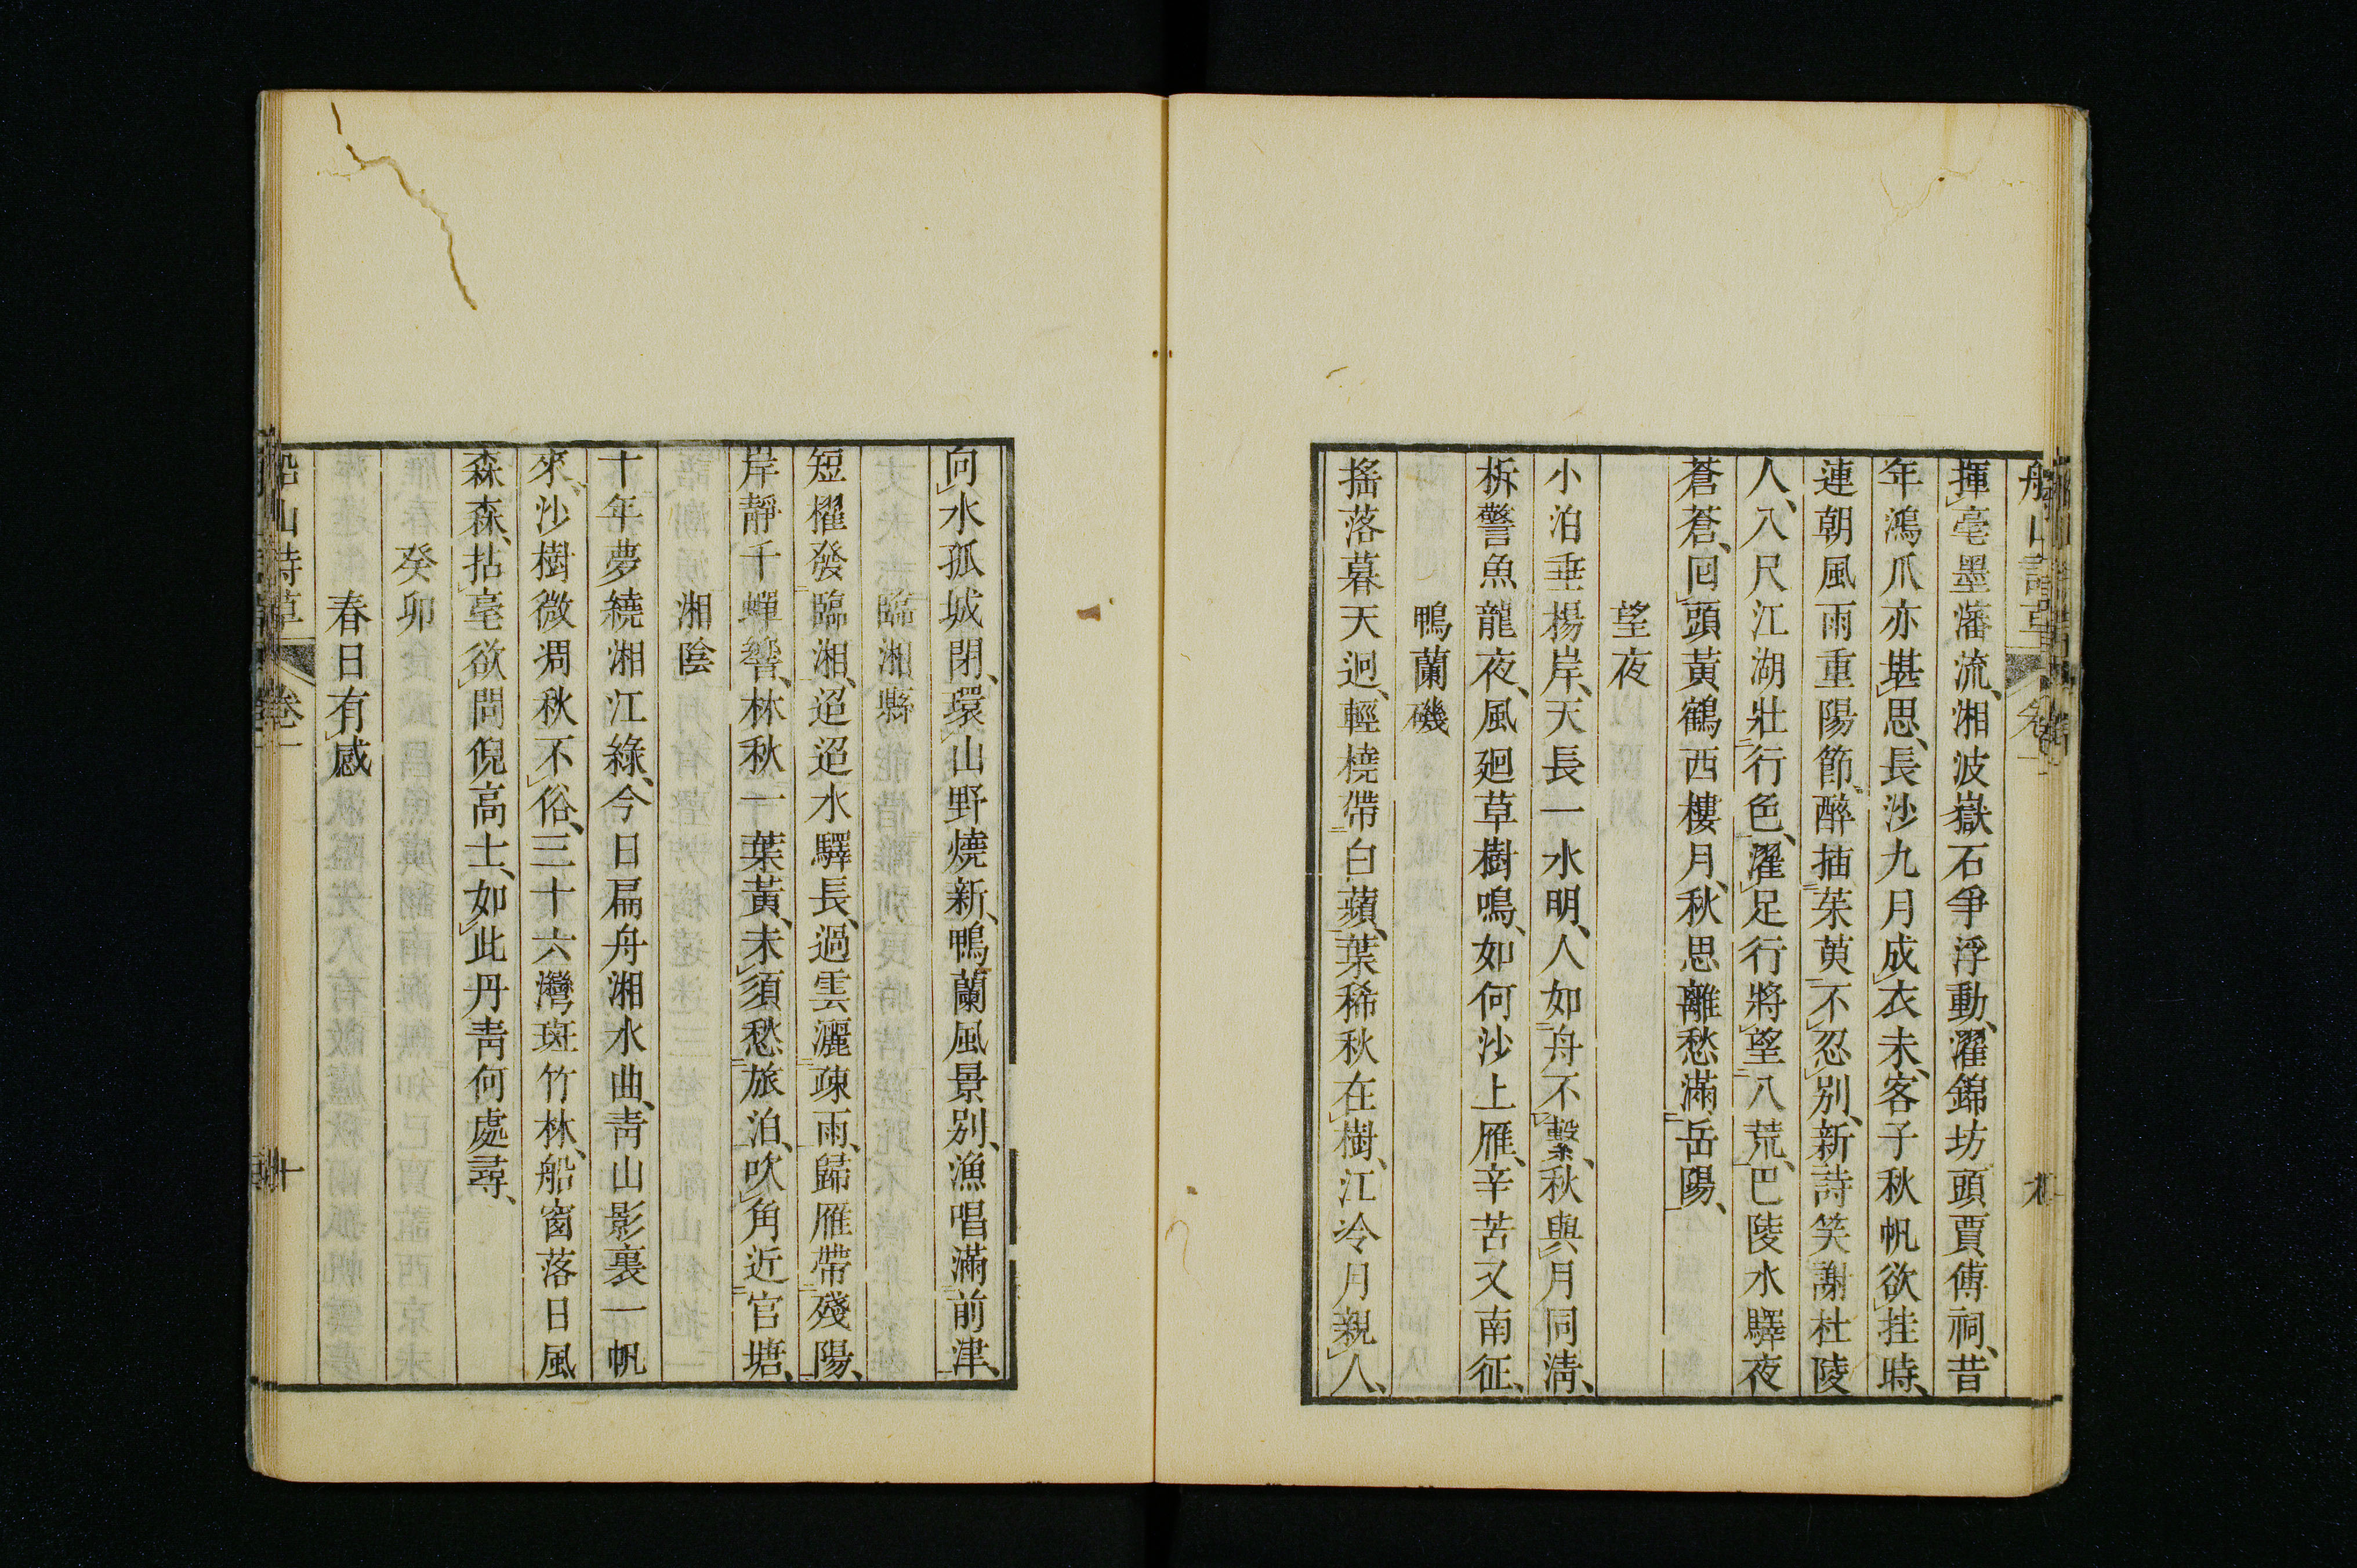 船山詩草 卷一
揮毫墨瀋流、湘波嶽石爭浮動、濯錦坊頭賈傅祠、昔
年鴻爪亦堪思、長沙九月成衣未、客子秋帆欲挂時、
連朝風雨重陽節、醉插茱萸不忍別、新詩笑謝杜陵
人、八尺江湖壯行色、濯足行將望八荒、巴陵水驛夜
蒼蒼、回頭黃鶴西樓月、秋思離愁滿岳陽、
望夜
小泊垂楊岸、天長一水明、人如舟不繫、秋與月同淸、
柝警魚龍夜、風廻草樹鳴、如何沙上雁、辛苦又南征、
鴨蘭磯
搖落暮天迥、輕橈帶白蘋、葉稀秋在樹、江冷月親人、
向水孤城閉、環山野燒新、鴨蘭風景別、漁唱滿前津、
臨湘縣
短櫂發臨湘、迢迢水驛長、過雲灑疎雨、歸雁帶殘陽、
岸靜千蟬響、林秋一葉黃、未須愁旅泊、吹角近官塘、
湘陰
十年夢繞湘江綠、今日扁舟湘水曲、靑山影裏一帆
來、沙樹微凋秋不俗、三十六灣斑竹林、船窗落日風
森森、拈毫欲問倪高士、如此丹靑何處尋、
癸卯
春日有感
船山詩草 卷一 十